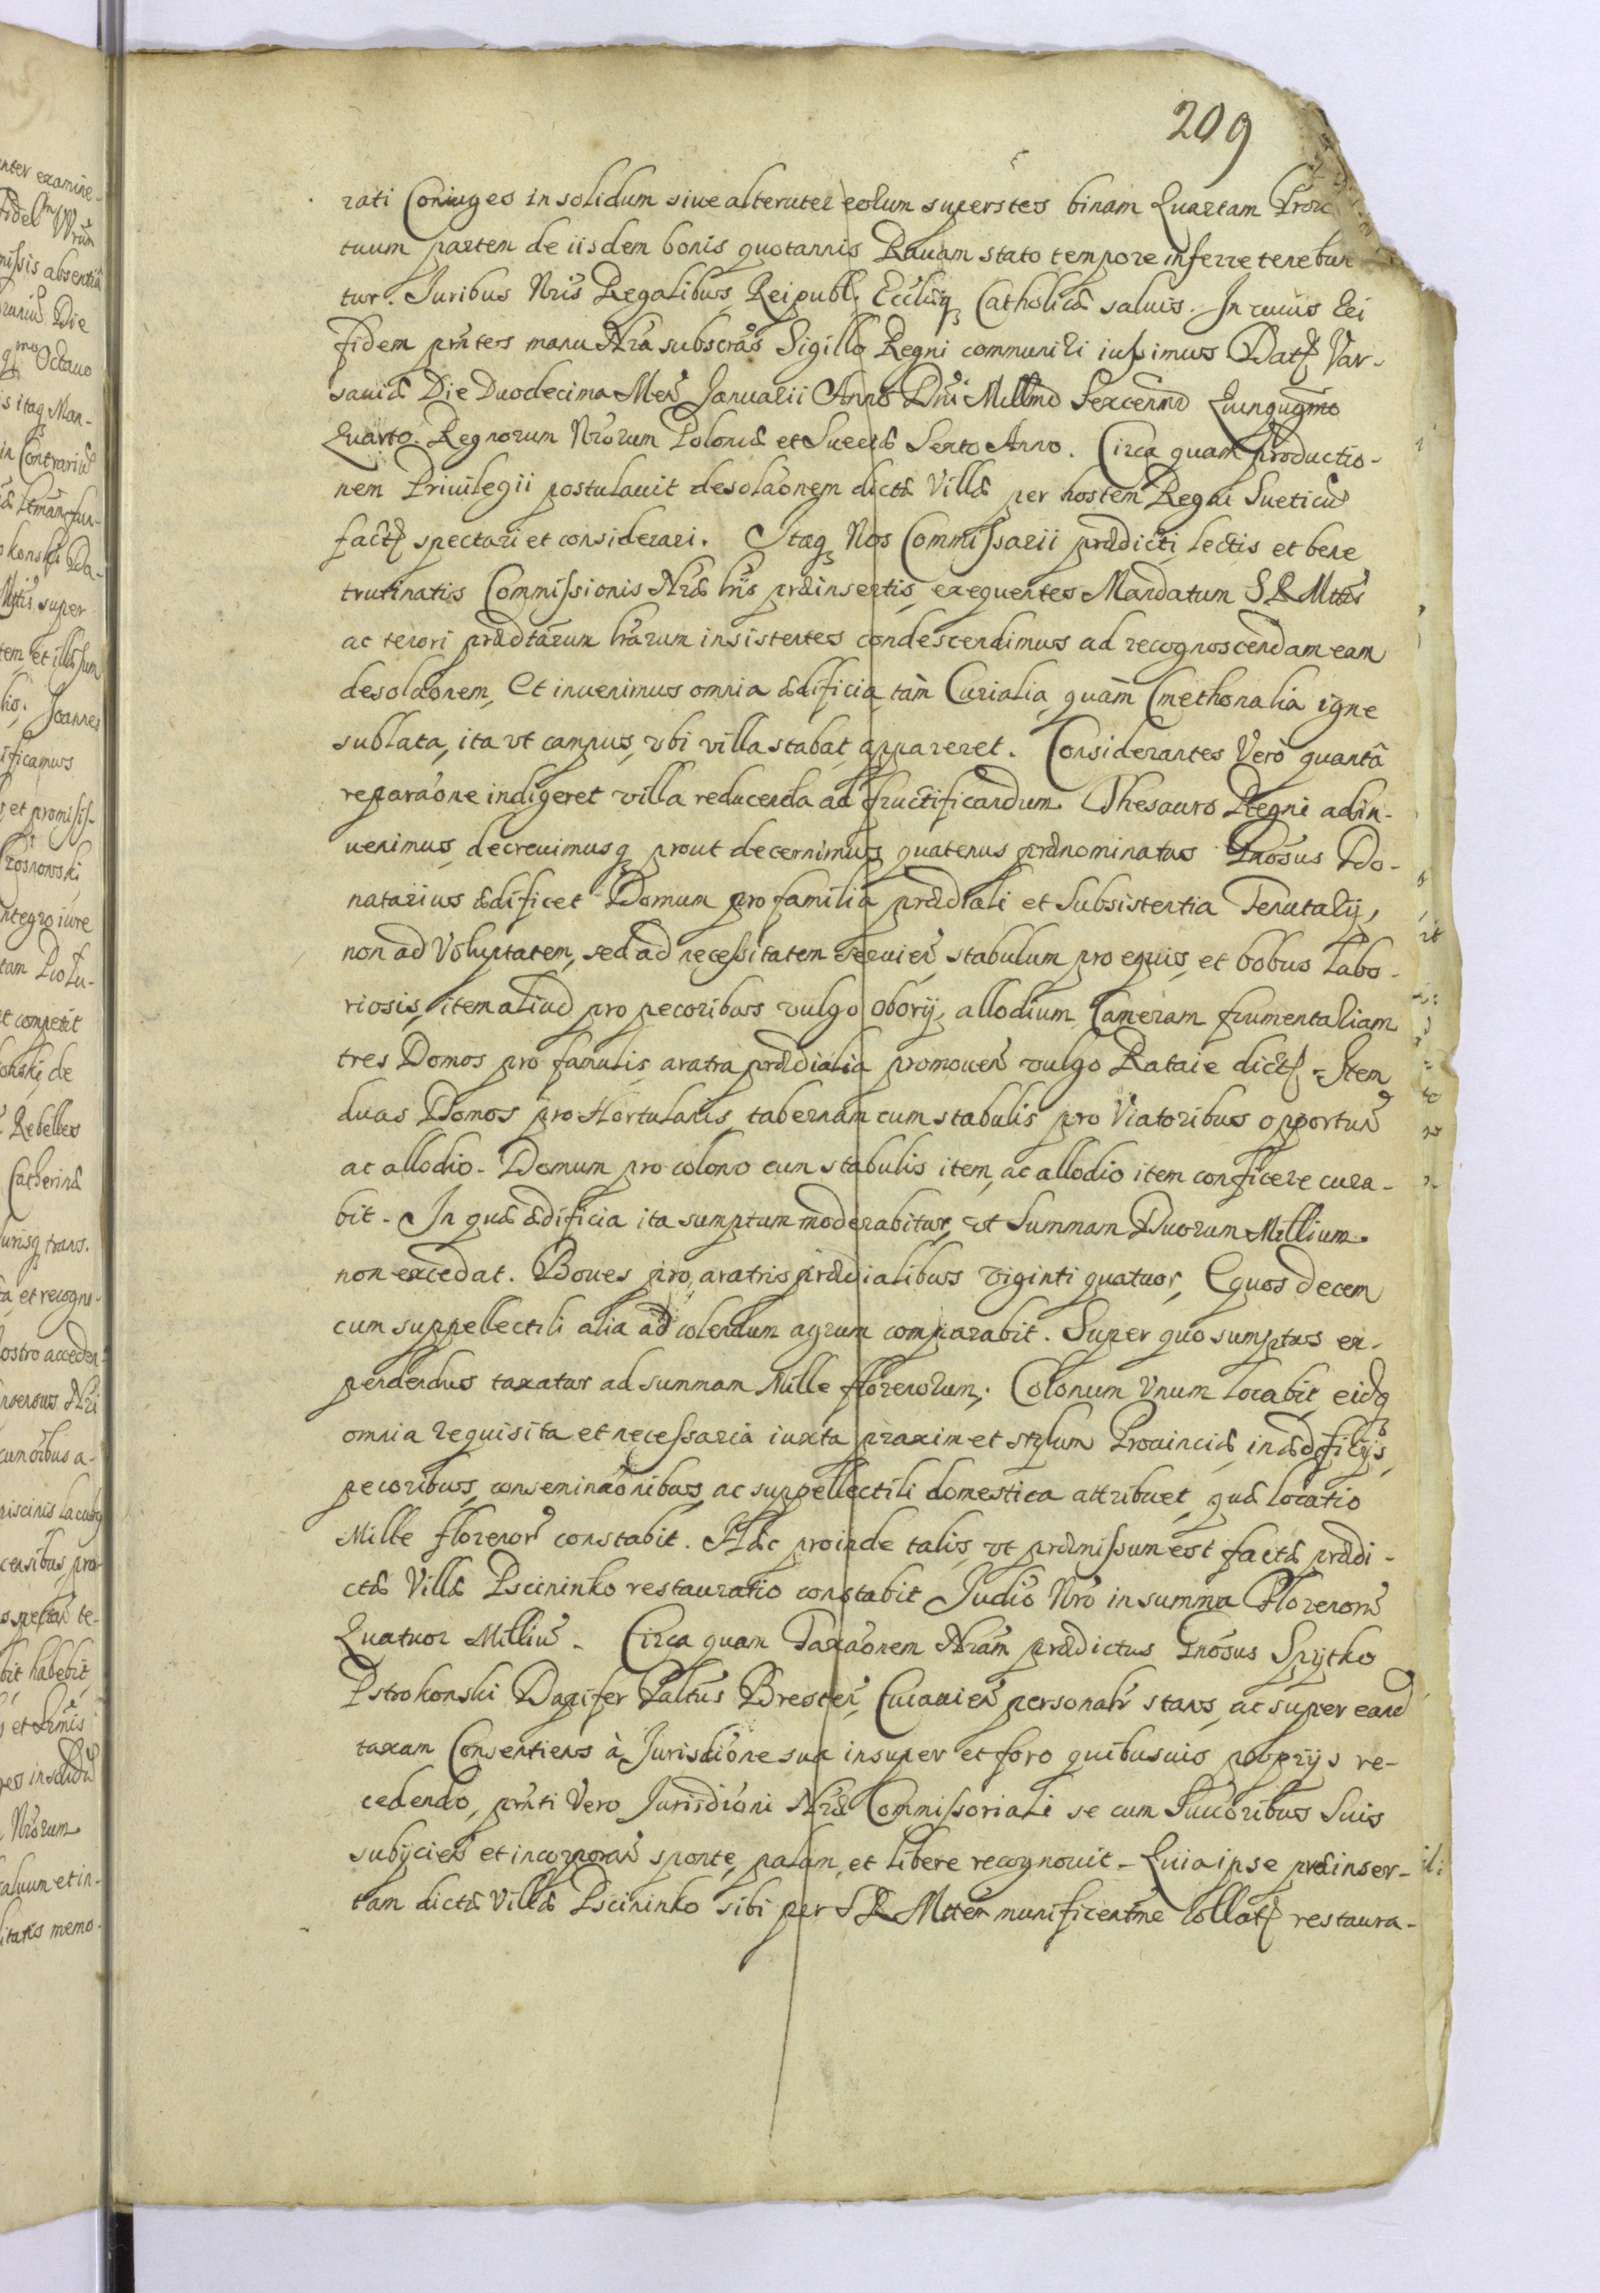 209
rati Coniuges in solidum siue alteruter eorum superstes binam Quartam
tuum partem de iisdem bonis quotannis Rauam stato tempore inferre tenebun
tur. Juribus Nris Regalibus Reipubl. Ecclaeq3 Catholicae saluis. In cuius rei
fidem pntes manu Nra subscras Sigillo Regni communiri iussimus Dat Var-
sauiae Die Duodecima Men Januarii Anno Dni Millmo Sexcenmo Quinqugmo
Quarto. Regnorum Nrorum Poloniae et Sueciae Sexto Anno. Circa quam productio-
nem Priuilegii postulauit desolaonem dictae Villae per hostem Regni Sueticu
fact spectari et considerari. Itaq3 Nos Commissarii praedicti lectis et bene
trutinatis Commissionis Nrae lris praeinsertis, exequentes Mandatum S R Mttis
ac tenori praedtarum lrarum insistentes condescendimus ad recognoscendam eam
desolaonem, Et inuenimus omnia aedificia tàm Curialia, quàm Cmethonalia igne
sublata, ita vt campus, vbi villa stabat, appareret. Considerantes Verò quantâ
reparaone indigeret villa reducenda ad fructificandum Thesauro Regni adin-
uenimus, decreuimusq3 prout decernimus quatenus praenominatus Gnosus Do-
natarius aedificet Domum pro familia praediali et Subsistentia Tenutarij,
non ad Voluptatem, sed ad necessitatem seruien, stabulum pro equis, et bobus labo-
riosis, item aliud pro pecoribus vulgo obory, allodium Cameram frumentaliam
tres Domos pro famulis aratra praedialia promouen vulgo Rataie dict. Item
duas Domos pro Hortulanis, tabernam cum stabulis pro Viatoribus opportun
ac allodio. Domum pro colono cum stabulis item, ac allodio item conficere cura-
bit. In quae aedificia ita sumptum moderabitur, vt Summam Duorum Millium
non excedat. Boues pro aratris praedialibus viginti quatuor, Equos decem
cum suppellectili alia ad colendum agrum comparabit. Super quo sumptus ex-
pendendus taxatur ad summam Mille florenorum; Colonum Vnum locabit, eidq3
omnia requisita et necessaria iuxta praxim et stylum Prouinciae, in aedificijs,
pecoribus, conseminaonibus, ac suppellectili domestica attribuet, quae locatio
Mille florenor constabit. Haec proinde talis, vt praemissum est factae praedi-
ctae Villae Pscininko restauratio constabit Judio Nro in summa Florenor
Quatuor Milliu. Circa quam Taxaonem Nram praedictus Gnosus Spytko
Pstrokonski Dapifer Paltus Bresten, Cuiauien personalr stans, ac super eand
taxam Consentiens à Jurisdione sua insuper et foro quibusuis proprijs re-
cedendo, pnti Vero Jurisdioni Nrae Commissoriali se cum Succoribus Suis
subijcien et incorporan sponte, palam, et libere recognouit. Quia ipse praeinser-
tam dictae Villae Pscininko sibi per S R Mttem munificentme collat restaura-